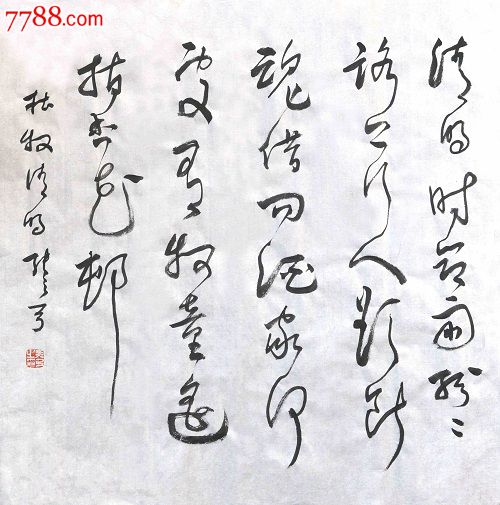 7788.com
中国收藏热线
清明时节雨纷々
路上行人欲断
魂借问酒家何
处有牧童遥
指杏花邨
杜牧清明